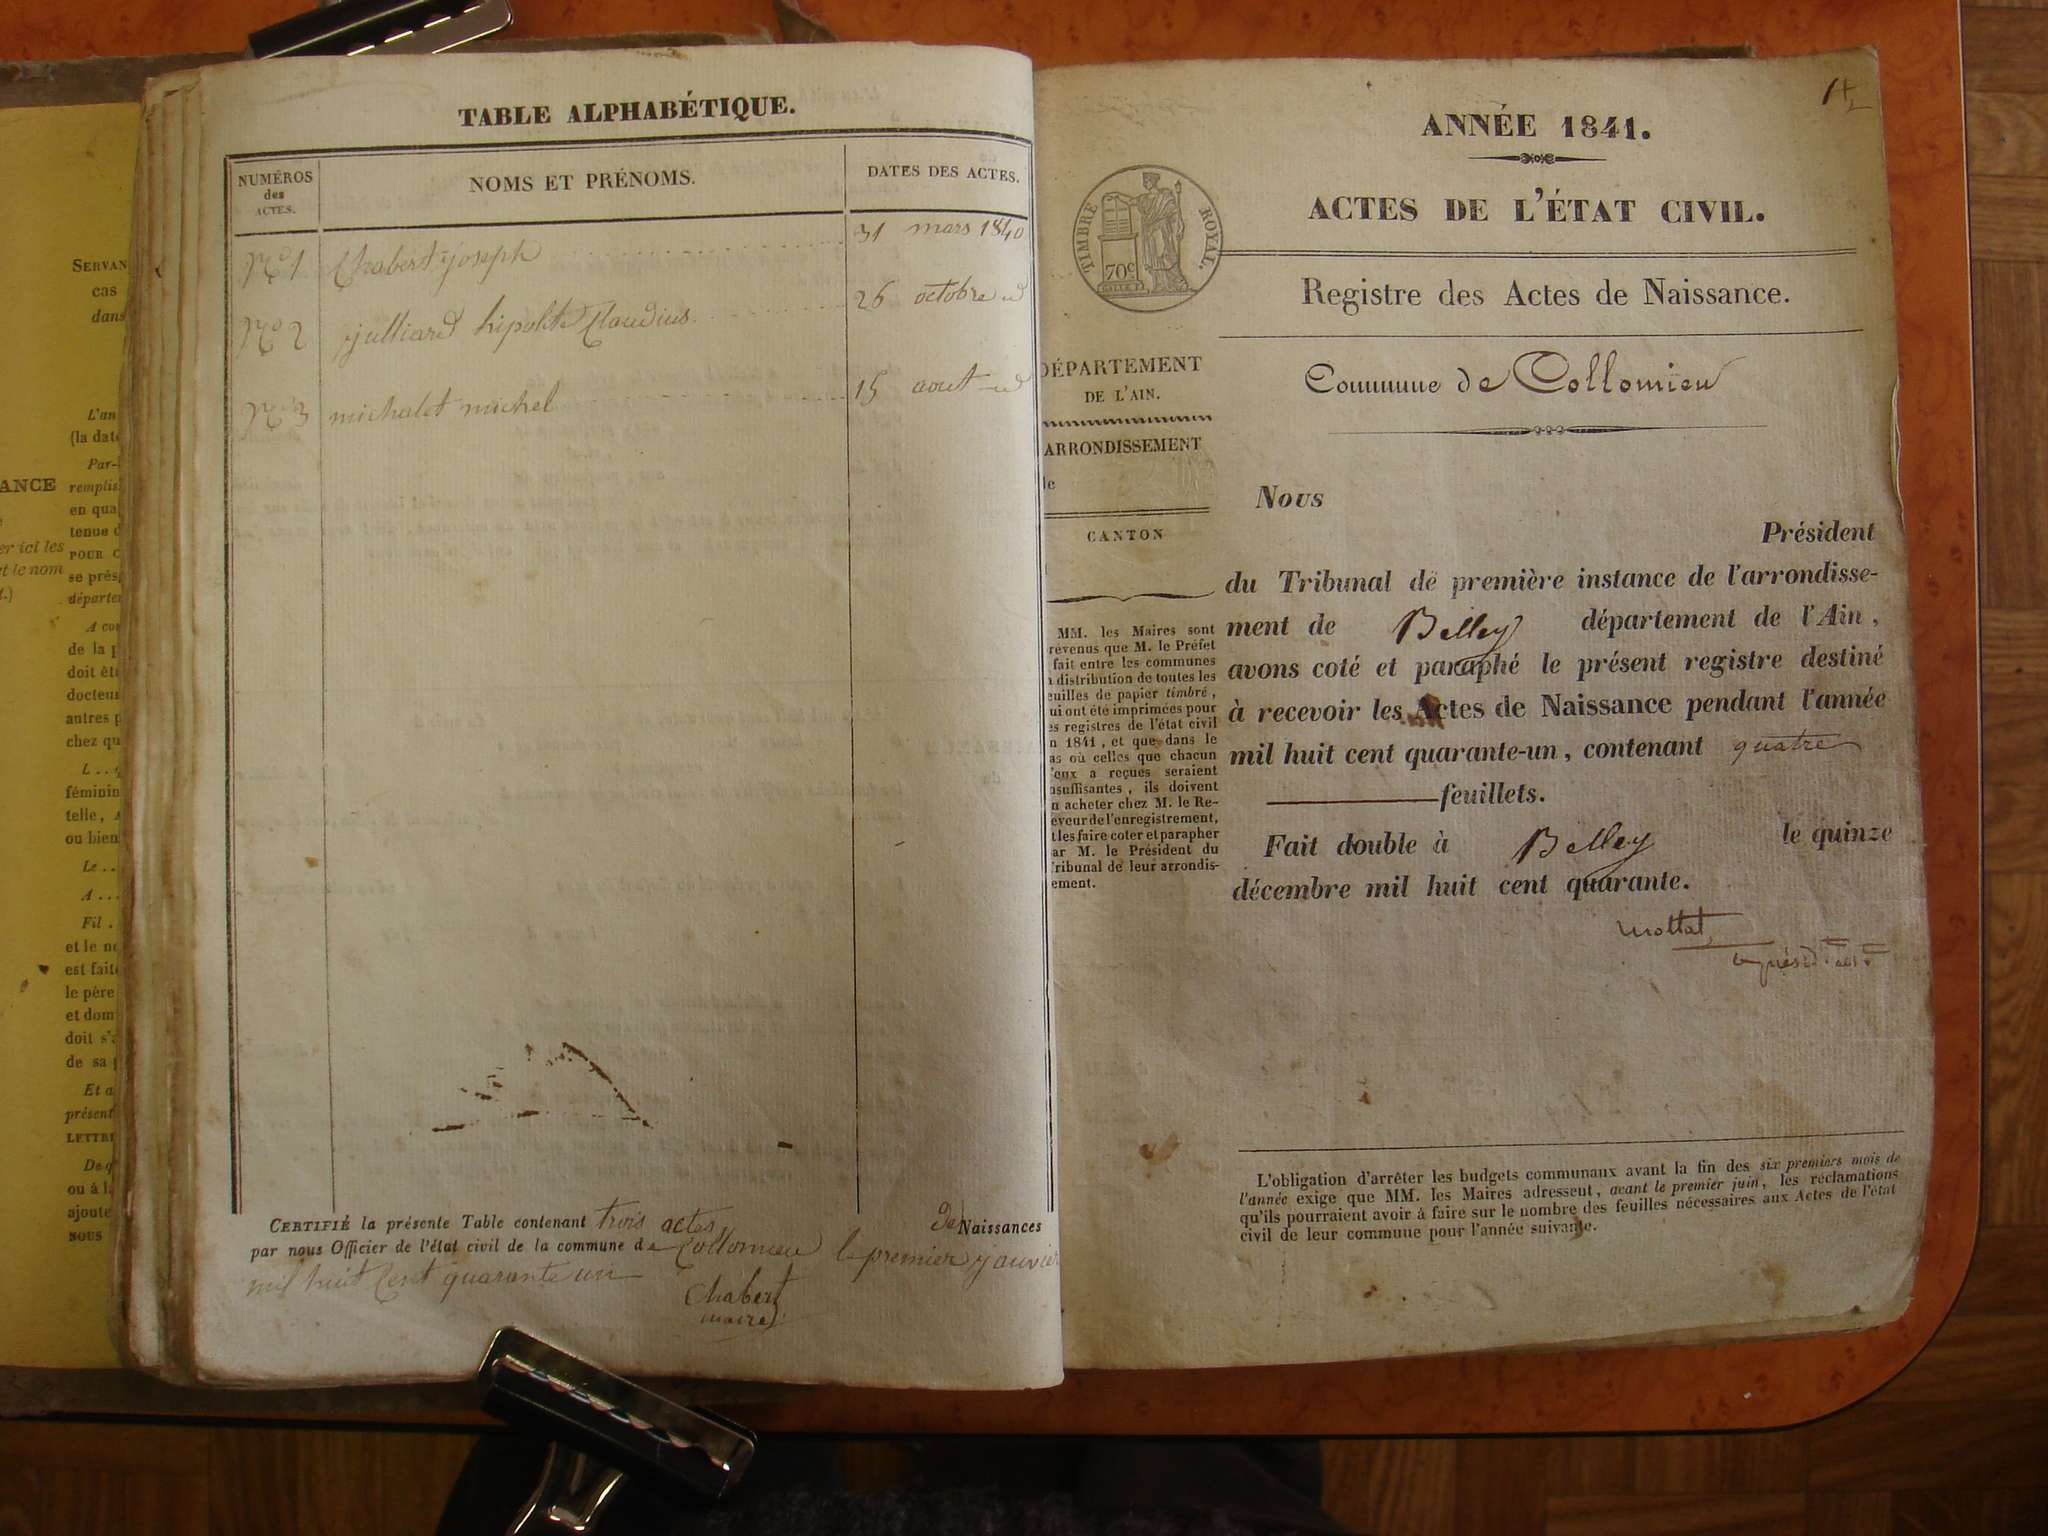 SERVAN
cas
dans
L'an
(la dat
Par-
ANCE
remplis
en qua
tenue d
er ici les
POUR C
et le nom
se prés
départe
A co
de la p
doit êt
docteu
autres p
chez qu
féminin
telle,
ou bien
Le ..
A ...
Fil .
et le no
est fait
le père
et dom
doit s'a
de sa p
Et a
présent
LETTRE
De q
ou à la
ajoute
NOUS
TABLE ALPHABÉTIQUE.
NUMÉROS
des
ACTES.
NOMS ET PRÉNOMS.
DATES DES ACTES.
No 1 Chabert joseph 31 mars 1840
No 2 julliard hipolite Claudius 26 octobre id
No 3 michalet michel 15 aout id
CERTIFIÉ la présente Table contenant trois actes de Naissances
par nous Officier de l'état civil de la commune de Collomieu le premier janvier
mil huit Cent quarante un
Chabert
maire
14
ANNÉE 1841.
ACTES DE L'ÉTAT CIVIL.
TIMBRE ROYAL.
70c
Registre des Actes de Naissance.
DÉPARTEMENT
DE L'AIN.
ARRONDISSEMENT
de
CANTON
MM. les Maires sont
révenus que M. le Préfet
fait entre les communes
a distribution de toutes les
euilles de papier timbré,
ui ont été imprimées pour
es registres de l'état civil
n 1841, et que dans le
as où celles que chacun
'eux a reçues seraient
nsuffisantes, ils doivent
n acheter chez M. le Re-
eveur de l'enregistrement,
t les faire coter et parapher
ar M. le Président du
ribunal de leur arrondis-
ement.
Commune de Collomieu
Nous
Président
du Tribunal de première instance de l'arrondisse-
ment de Belley département de l'Ain,
avons coté et paraphé le présent registre destiné
à recevoir les Actes de Naissance pendant l'année
mil huit cent quarante-un, contenant quatre
feuillets.
Fait double à Belley le quinze
décembre mil huit cent quarante.
Mottat
L'obligation d'arrêter les budgets communaux avant la fin des six premiers mois de
l'année exige que MM. les Maires adressent, avant le premier juin, les réclamations
qu'ils pourraient avoir à faire sur le nombre des feuilles nécessaires aux Actes de l'état
civil de leur commune pour l'année suivante.